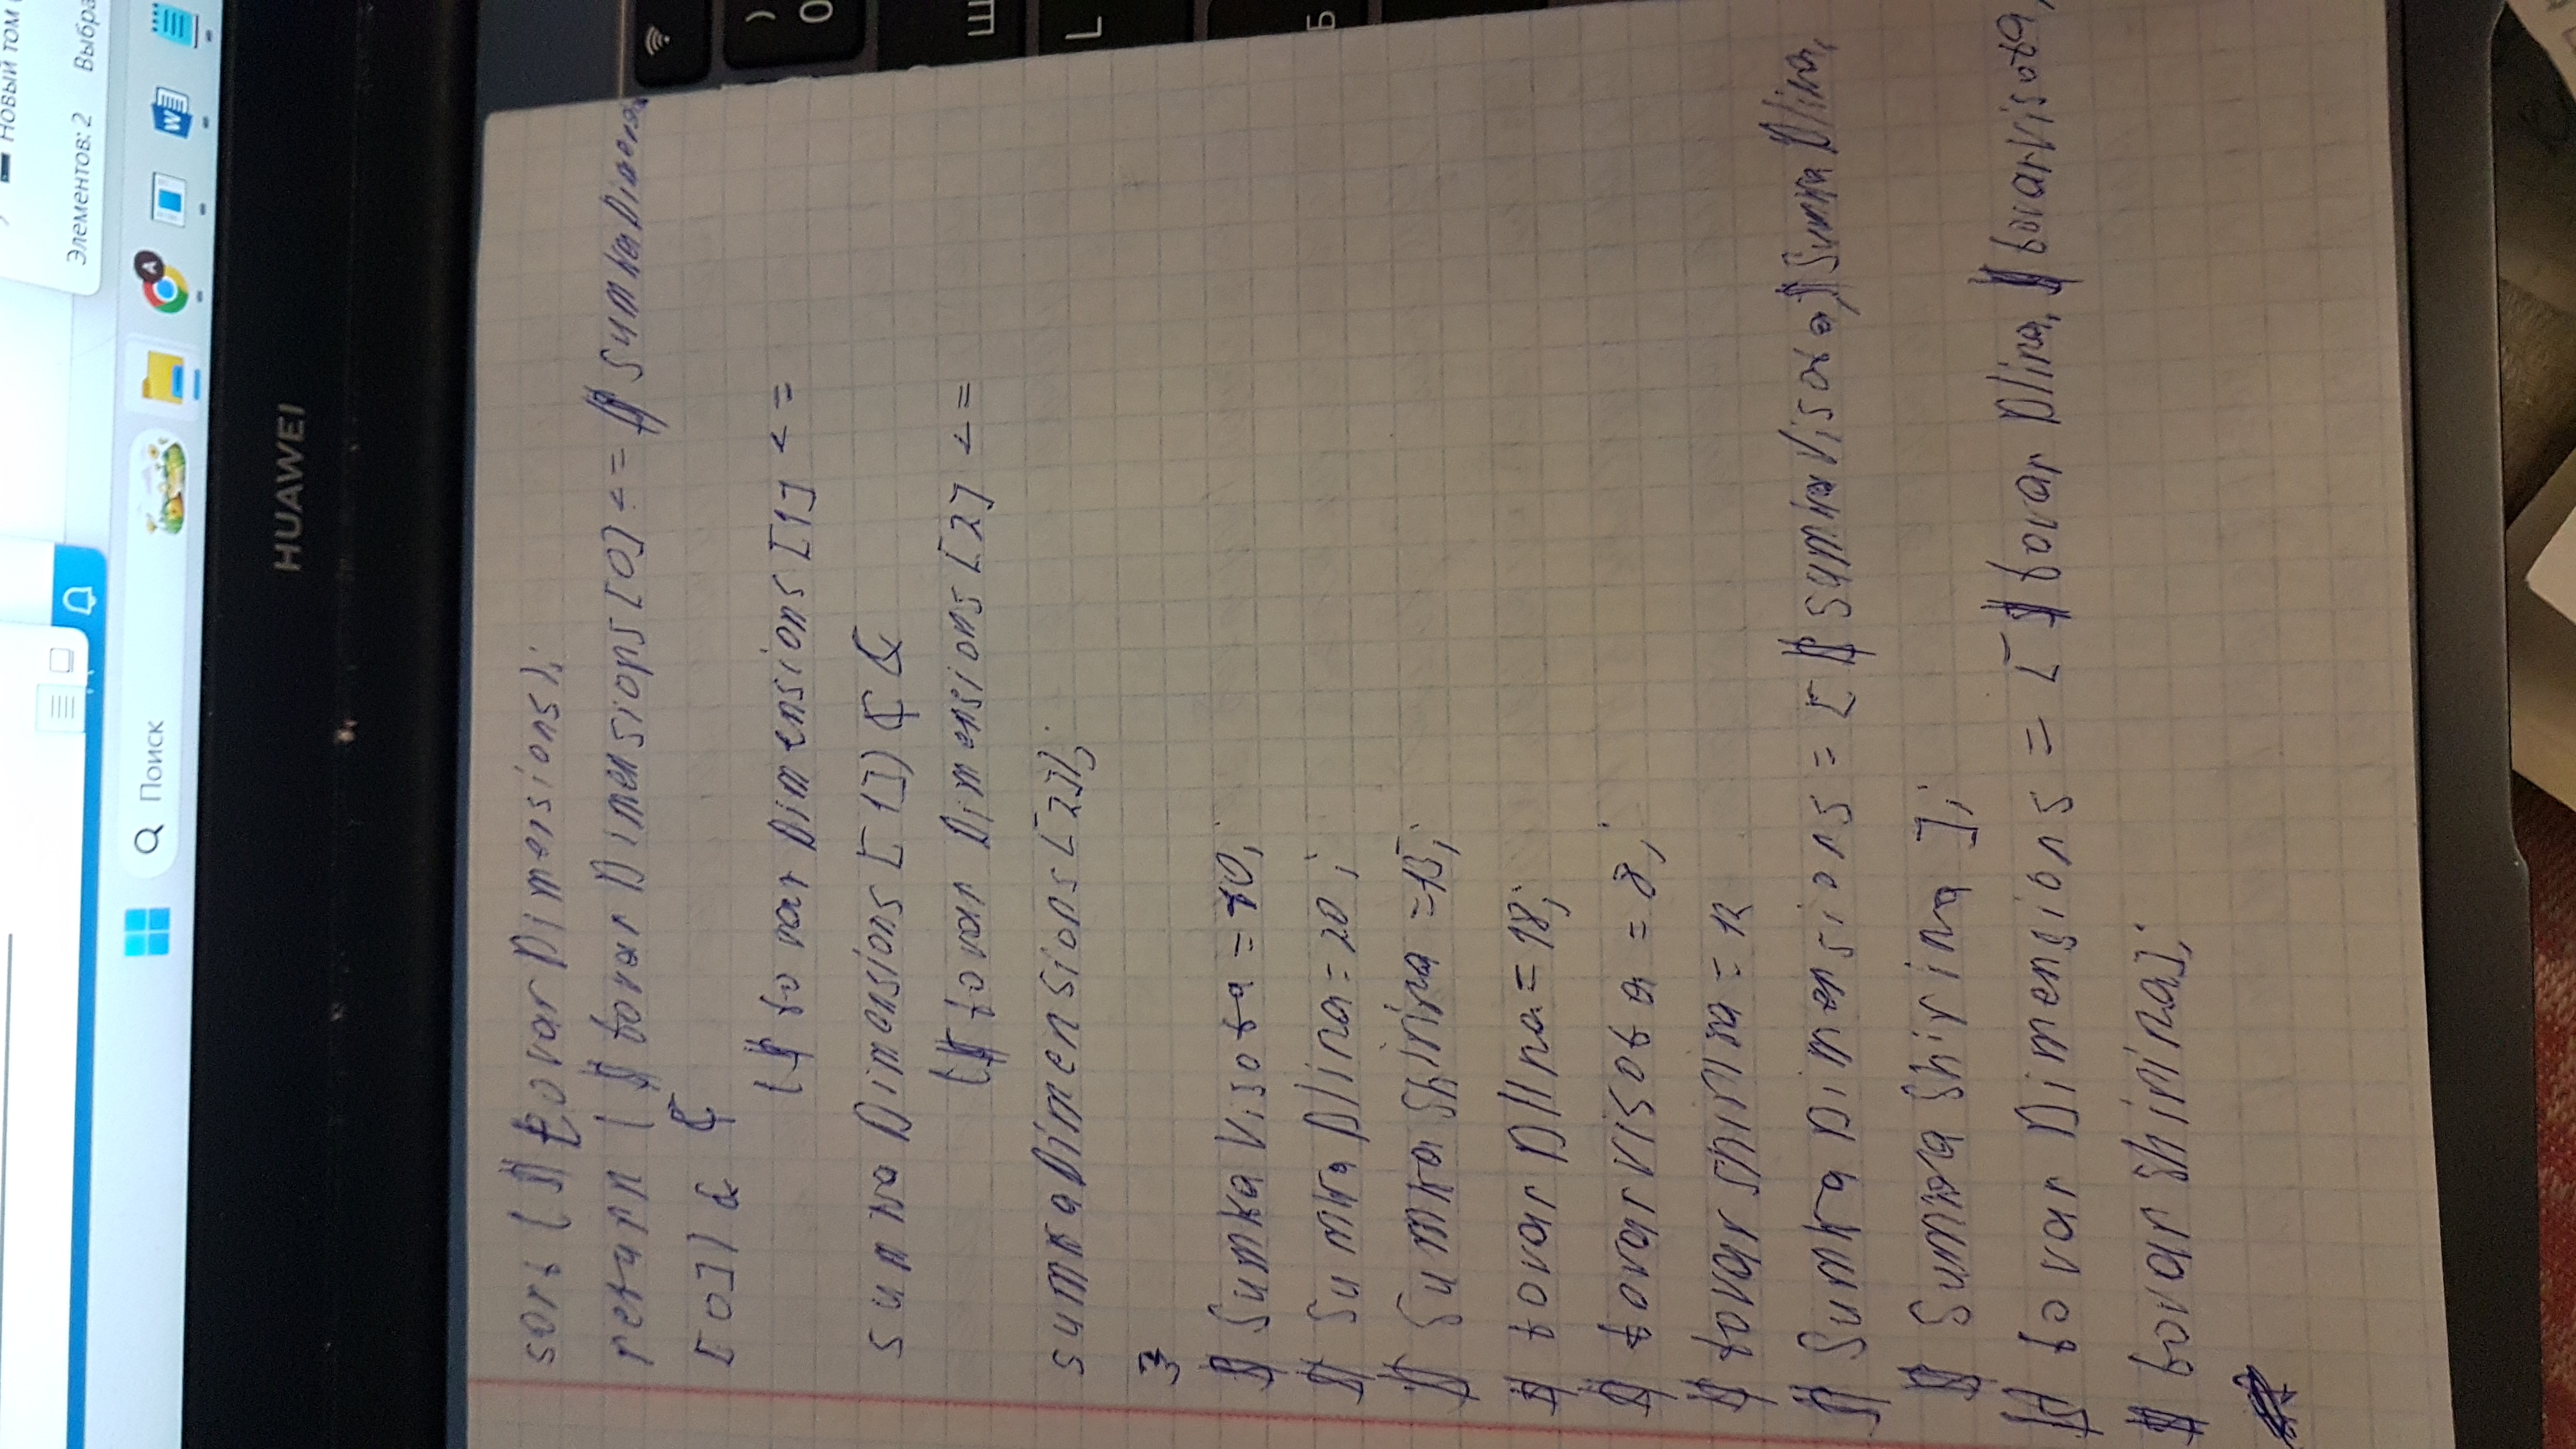 Новый том
Элементов: 2 Выбра
Поиск
A
W
HUAWEI
sort ($tovarDimensions);
return ($tovarDimensions[0] <= $SumkaDimens
[0]) & &
($tovarDimensions[1] <=
sumkaDimensions[1]) & &
($tovarDimensions[2] <=
sumkaDimensions[2]);
}
$SumkaVisota = 10;
$SumkaDlina = 20;
$SumkaShirina = 15;
$tovarDlina = 18;
$tovarvisota = 8;
$tovarshirina = 12
$SumkaDimensions = [$sumkaVisota, $SumkaDlina,
$SumkaShirina];
$tovarDimensions = [$tovarDlina, $tovarvisota,
$tovarshirina];
)
0
Ш
L
Б